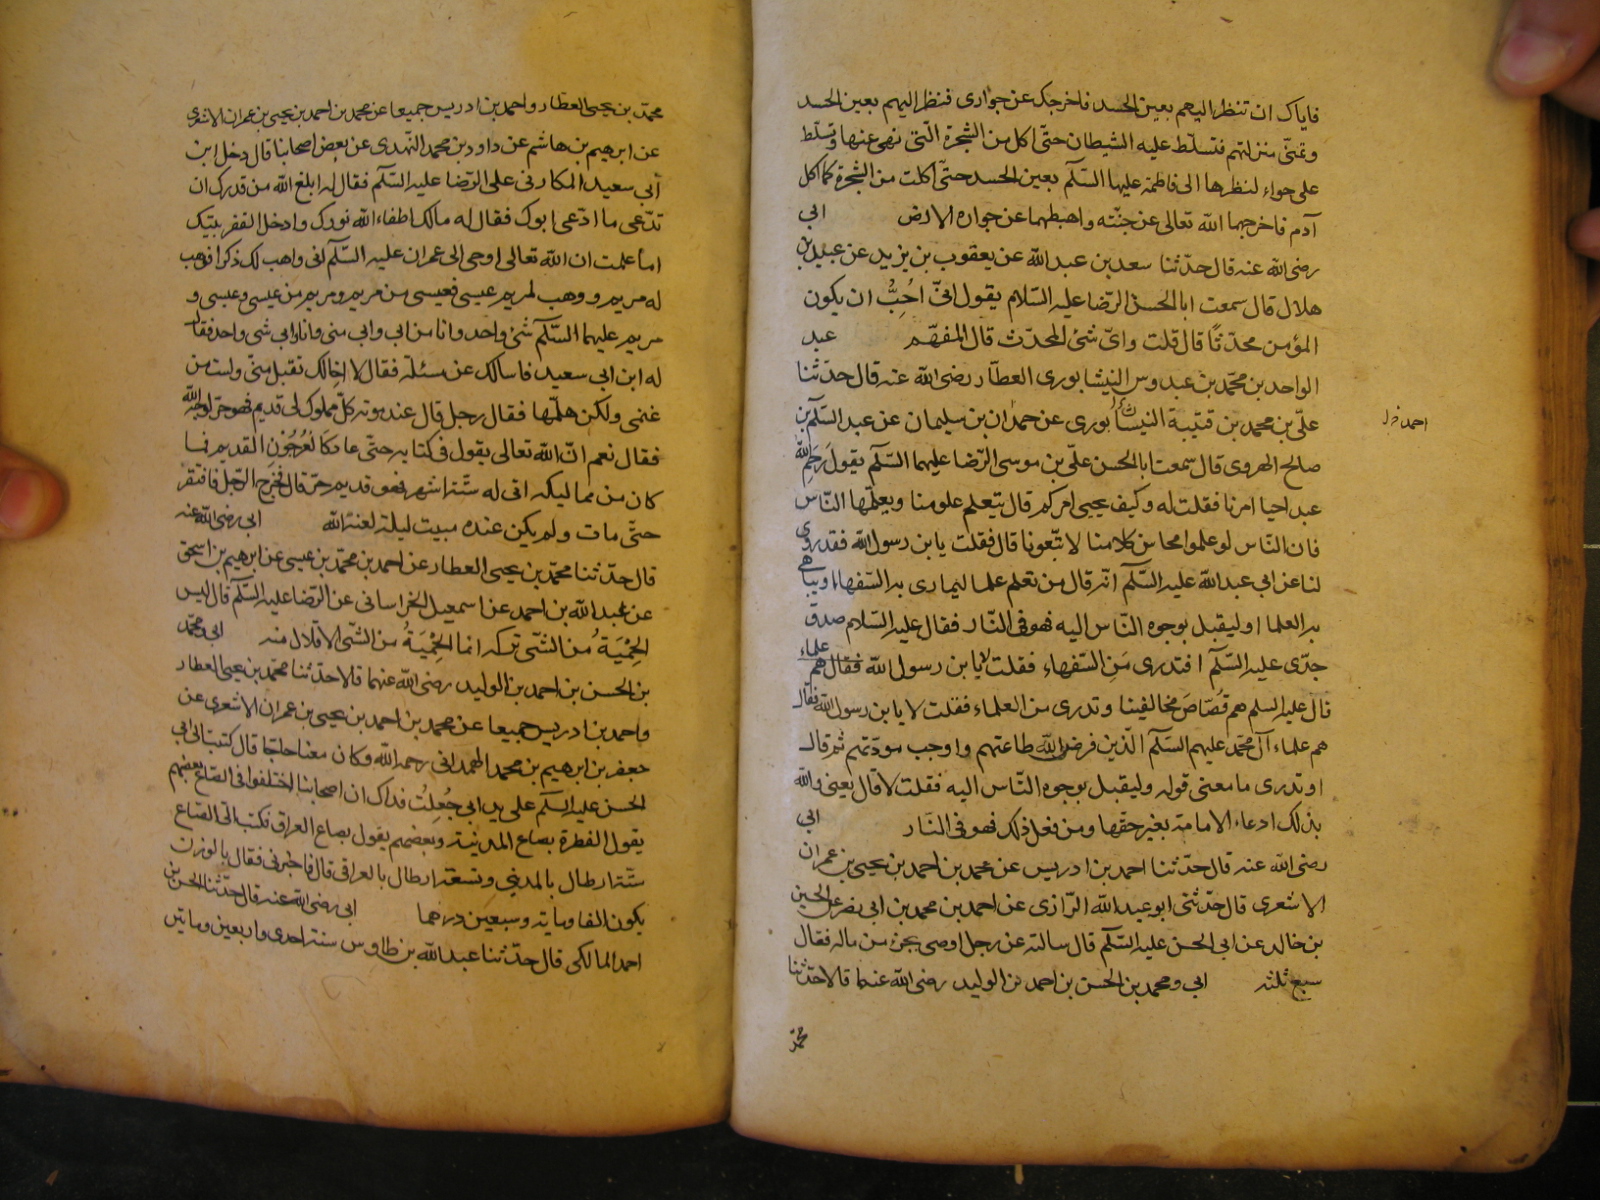 فاياك ان تنظر اليهم بعين الحسد فاخرجك عن جواري فنظر اليهم بعين الحسد
وتمنّى منزلتهم فتسلّط عليه الشيطان حتّى اكل من الشجرة الّتي نهى عنها وتسلّط
على حواء لنظرها الى فاطمة عليها السّلم بعين الحسد حتّى اكلت من الشجرة كما اكل
آدم فاخرجهما الله تعالى عن جنّته واهبطهما عن جواره الى الارض ابي
رضي الله عنه قال حدّثنا سعد بن عبد الله عن يعقوب بن يزيد عن عبيد بن
هلال قال سمعت ابا الحسن الرّضا عليه السّلام يقول انّي اُحِبُّ ان يكون
المؤمن محدّثا قال قلت وايّ شئ المحدّث قال المفهّم عبد
الواحد بن محمّد بن عبدوس النيشابوري العطّار رضي الله عنه قال حدّثنا
علّي بن محمد بن قتيبة النيسابوري عن حمدان بن سليمان عن عبد السّلم بن
صالح الهروي قال سمعت ابا الحسن علّي بن موسى الرّضا عليهما السّلم يقول رَحِمَ الله
عبدا احيا امرنا فقلت له وكيف يحيى امركم قال يتعلم علومنا ويعلّمها النّاس
فان النّاس لو علموا محاسن كلامنا لاتّبعونا قال فقلت يا بن رسول الله فقد روى
لنا عن ابي عبد الله عليه السّلم انّه قال من تعلم علما ليماري به السّفهاء او يباهي
به العلما او ليقبل بوجوه النّاس اليه فهو في النّار فقال عليه السّلام صدق
جدّي عليه السّلم افتدري مَنِ السّفهاء فقلت لا يا بن رسول الله فقال هم علماء
قال عليه السلم هم قُصّاص مخالفينا وتدري من العلماء فقلت لا يا بن رسول الله فقال
هم علماء آل محمّد عليهم السّلم الّذين فرض الله طاعتهم واوجب مودّتهم ثم قال
او تدري ما معنى قوله وليقبل بوجوه النّاس اليه فقلت لا قال يعني والله
بذلك ادعاء الامامة بغير حقّها ومن فعل ذلك فهو في النّار ابي
رضي الله عنه قال حدّثنا احمد بن ادريس عن محمد بن احمد بن يحيى بن عمران
الاشعري قال حدّثني ابو عبد الله الرّازي عن احمد بن محمد بن ابي نصر عن الحسين
بن خالد عن ابي الحسن عليه السّلم قال سالته عن رجل اوصى بجزء من ماله فقال
سبع ثلثه ابي ومحمد بن الحسن بن احمد بن الوليد رضي الله عنهما قالا حدّثنا
محمّد
محمّد بن يحيى العطّار واحمد بن ادريس جميعا عن محمد بن احمد بن يحيى بن عمران الاشعري
عن ابرهيم بن هاشم عن داود بن محمد النّهدي عن بعض اصحابنا قال دخل ابن
أبي سعيد المكاري على الرّضا عليه السّلم فقال له ابلغ الله من قدرك ان
تدّعي ما ادّعى ابوك فقال له مالك اطفاء الله نورك وادخل الفقر بيتك
اما علمت ان الله تعالى اوحى الى عمران عليه السّلم اني واهب لك ذكرا فوهب
له مريم ووهب لمريم عيسى فعيسى من مريم ومريم من عيسى وعيسى و
مريم عليهما السّلم شئ واحد وانا من ابي وابي مني وانا وابي شي واحد فقال
له ابن ابي سعيد فاسالك عن مسئلة فقال لا اخالك تقبل منّي ولست من
غنمي ولكن هلمّها فقال رجل قال عند موته كلّ مملوك لي قديم فهو حرّ لوجه الله
فقال نعم انّ الله تعالى يقول في كتابه حتّى عاد كَالعُرْجُونِ القديم فما
كان من مماليكه اتى له ستّة اشهر فهو قديم حرّ قال فخرج الرّجل فافتقر
حتّى مات ولم يكن عنده مبيت ليلة لعنه الله ابي رضي الله عنه
قال حدّثنا محمّد بن يحيى العطار عن احمد بن محمّد بن عيسى عن ابرهيم بن اسحق
عن عبد الله بن احمد عن اسمعيل الخراساني عن الرّضا عليه السّلم قال ليس
الحِمْيَة من الشّي تركه انما الحِمْيَةُ من الشّي الاقلال منه ابي ومحمّد
بن الحسن بن احمد بن الوليد رضي الله عنهما قالا حدّثنا محمّد بن يحيى العطار
واحمد بن ادريس جميعا عن محمد بن احمد بن يحيى بن عمران الاشعري عن
جعفر بن ابرهيم بن محمد الهمداني رحمه الله وكان معنا حاجّا قال كتبت الى ابي
الحسن عليه السلم على يد ابي جُعِلتُ فداك ان اصحابنا اختلفوا في الصّاع بعضهم
يقول الفطرة بصاع المدينة وبعضهم يقول بصاع العراق فكتب الّي الصّاع
ستّة ارطال بالمدني وتسعة ارطال بالعراقي قال فاخبرني فقال بالوزن
يكون الفا ومائة وسبعين درهما ابي رضي الله عنه قال حدّثنا الحسن بن
احمد المالكي قال حدّثنا عبد الله بن طاوس سنة احدى واربعين وماتين